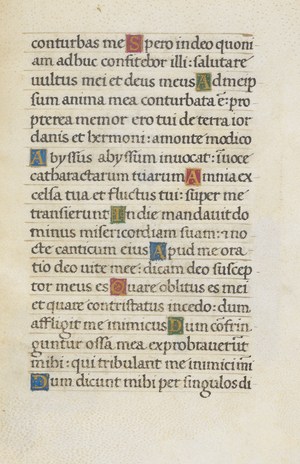 conturbas me Spero in deo quoni
am adhuc confitebor illi: salutare
vultus mei et deus meus Ad meip
sum anima mea conturbata ē: pro
pterea memor ero tui de terra ior
danis et hermoni: a monte modico
Abyssus abyssum invocat: in voce
catharactarum tuarum Omnia ex
celsa tua et fluctus tui: super me
transierunt In die mandavit do
minus misericordiam suam: no
cte canticum eius Apud me ora
tio deo vite mee: dicam deo suscep
tor meus es Quare oblitus es mei
et quare contristatus incedo: dum
affligit me inimicus Dum cōfrin
guntur ossa mea exprobraverūt
mihi: qui tribulant me inimici mei
Dum dicunt mihi per singulos di